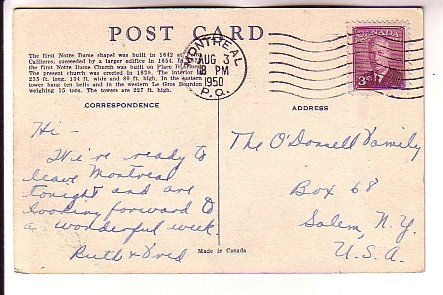 POST CARD
The first Notre Dame chapel was built in 1642 at
Callieres, succeeded by a larger edifice in 1654. In
the first Notre Dame Church was built on Place D'Armes.
The present church was erected in 1829. The interior is
255 ft. long, 134 ft. wide and 80 ft. high. In the eastern
tower hang ten bells and in the western Le Gros Bourdon
weighing 15 tons. The towers are 227 ft. high.
MONTREAL
AUG 3
8 PM
1950
P.Q.
CANADA
POSTES POSTAGE
3¢
CORRESPONDENCE
ADDRESS
Hi -
We're ready to
leave Montreal
tonight and are
looking forward to
a wonderful week.
Ruth &
Made in Canada
The O'Donnell Family
Box 68
Salem, N.Y.
U.S.A.